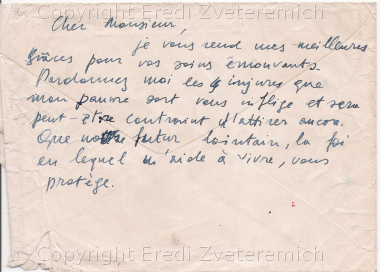 © Copyright Eredi Zveteremich
Cher Monsieur,
je vous rend mes meilleures
grâces pour vos soins émouvants.
Pardonnez moi les injures que
mon pauvre sort vous inflige et sera
peut-être contraint d'attirer encor.
Que notre futur lointain, la foi
en lequel m'aide à vivre, vous
protège.
© Copyright Eredi Zveteremich